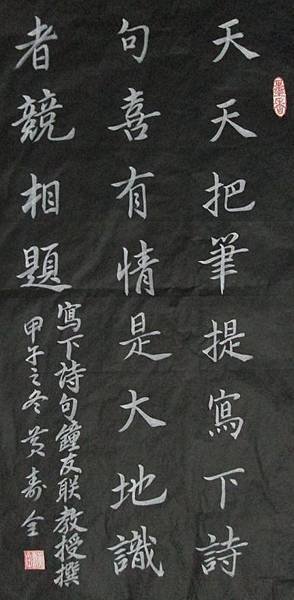 天天把筆提寫下詩
句喜有情是大地識
者競相題
寫下詩句鐘友联教授撰
甲午之冬黄壽全